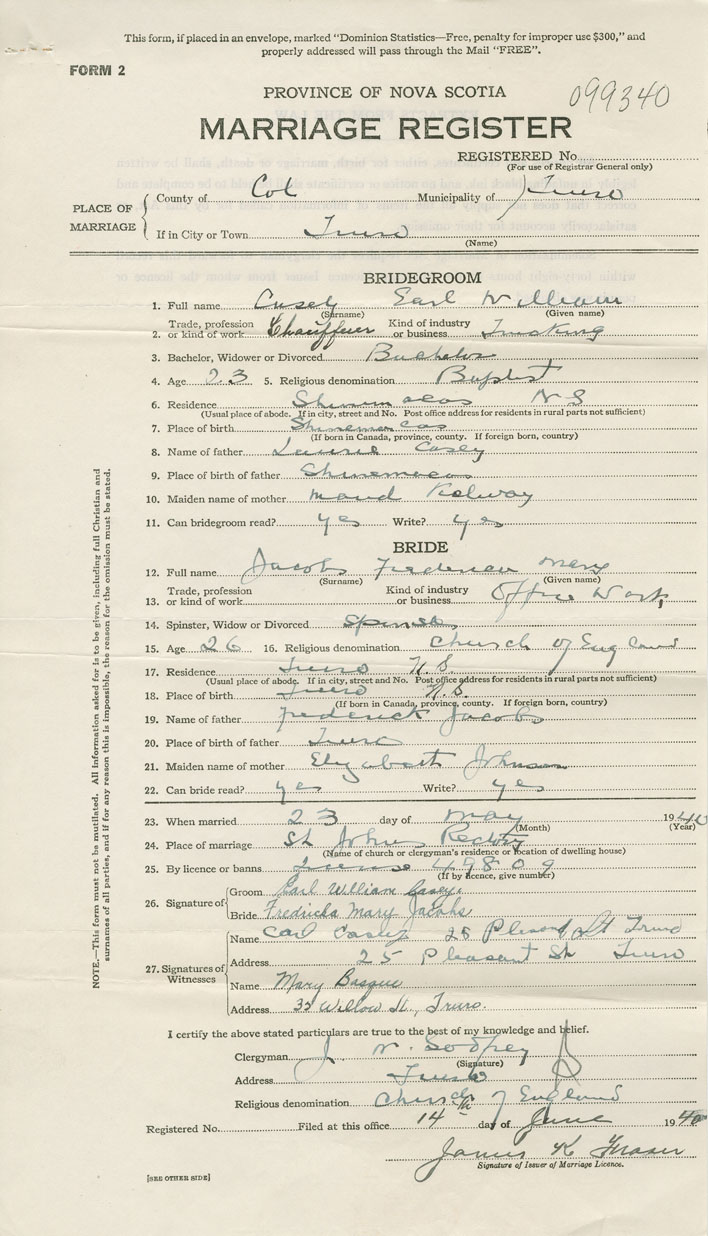 This form, if placed in an envelope, marked "Dominion Statistics—Free, penalty for improper use $300," and
properly addressed will pass through the Mail "FREE".
FORM 2
PROVINCE OF NOVA SCOTIA
099340
MARRIAGE REGISTER
REGISTERED No.
(For use of Registrar General only)
PLACE OF MARRIAGE
County of Col Municipality of Truro
If in City or Town Truro
(Name)
BRIDEGROOM
1. Full name Casey Earl William
(Surname) (Given name)
2. Trade, profession or kind of work Chauffeur Kind of industry or business Trucking
3. Bachelor, Widower or Divorced Bachelor
4. Age 23 5. Religious denomination Baptist
6. Residence N S
(Usual place of abode. If in city, street and No. Post office address for residents in rural parts not sufficient)
7. Place of birth Shinemecas
(If born in Canada, province, county. If foreign born, country)
8. Name of father Laurie Casey
9. Place of birth of father Shinemecas
10. Maiden name of mother Maud Kelway
11. Can bridegroom read? yes Write? yes
BRIDE
12. Full name Jacobs Mary
(Surname) (Given name)
13. Trade, profession or kind of work Kind of industry or business Office Work
14. Spinster, Widow or Divorced Spinster
15. Age 26 16. Religious denomination Church of England
17. Residence Truro N.S.
(Usual place of abode. If in city, street and No. Post office address for residents in rural parts not sufficient)
18. Place of birth Truro N.S.
(If born in Canada, province, county. If foreign born, country)
19. Name of father Frederick Jacobs
20. Place of birth of father Truro
21. Maiden name of mother Elizabeth Johnson
22. Can bride read? yes Write? yes
23. When married 23 day of May 1940
(Month) (Year)
24. Place of marriage St Johns Rectory
(Name of church or clergyman's residence or location of dwelling house)
25. By licence or banns License 49809
(If by licence, give number)
26. Signature of
Groom Earl William Casey
Bride Fredricka Mary Jacobs
27. Signatures of Witnesses
Name Carl Casey 25 Pleasant St Truro
Address 25 Pleasant St Truro
Name Mary Basque
Address 35 Willow St., Truro.
I certify the above stated particulars are true to the best of my knowledge and belief.
Clergyman J. W. Godfrey
(Signature)
Address Truro
Religious denomination Church of England
Registered No. Filed at this office 14th day of June 1940
James K Fraser
Signature of Issuer of Marriage Licence.
[SEE OTHER SIDE]
NOTE.—This form must not be mutilated. All Information asked for is to be given, including full Christian and
surnames of all parties, and if for any reason this is impossible, the reason for the omission must be stated.